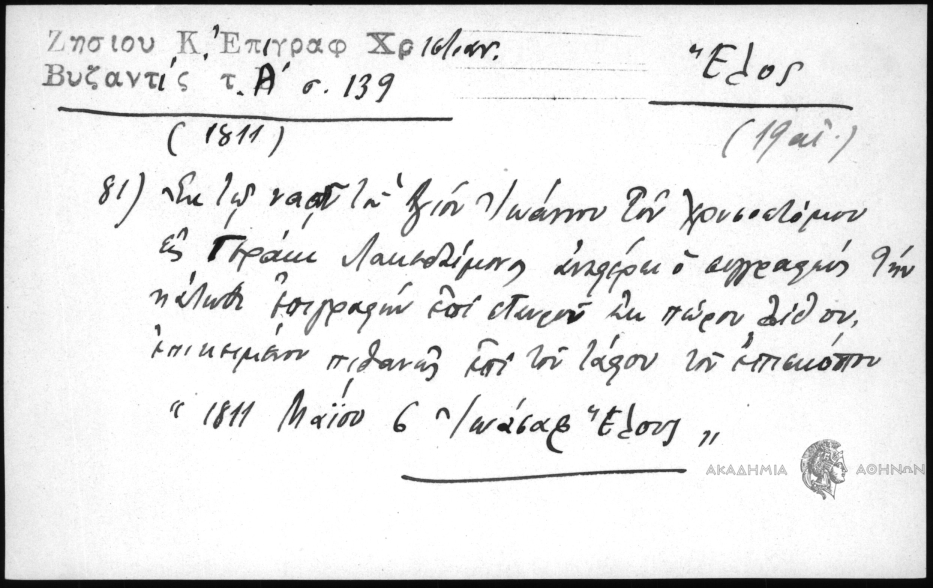 Ζησίου Κ. Ἐπιγραφ Χριστιαν.
Βυζαντίς τ. Α' σ. 139
Ἕλος
(1811)
(19 αἰ.)
81) Ἐκ τοῦ ναοῦ τοῦ Ἁγίου Ἰωάννου τοῦ Χρυσοστόμου
εἰς Γεράκι Λακεδαίμονος ἀναφέρει ὁ συγγραφεύς τήν
κάτωθι ἐπιγραφήν ἐπί σταυροῦ ἐκ πώρου λίθου,
ἐπικειμένου πιθανῶς ἐπί τοῦ τάφου τοῦ ἐπισκόπου
" 1811 Μαΐου 6 Ἰωάσαφ Ἕλους "
ΑΚΑΔΗΜΙΑ ΑΘΗΝΩΝ